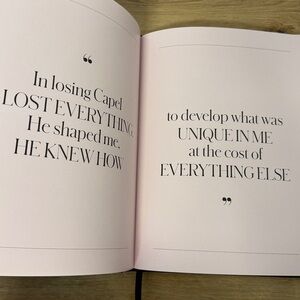 “
In losing Capel
LOST EVERYTHING.
He shaped me.
HE KNEW HOW
to develop what was
UNIQUE IN ME
at the cost of
EVERYTHING ELSE
”